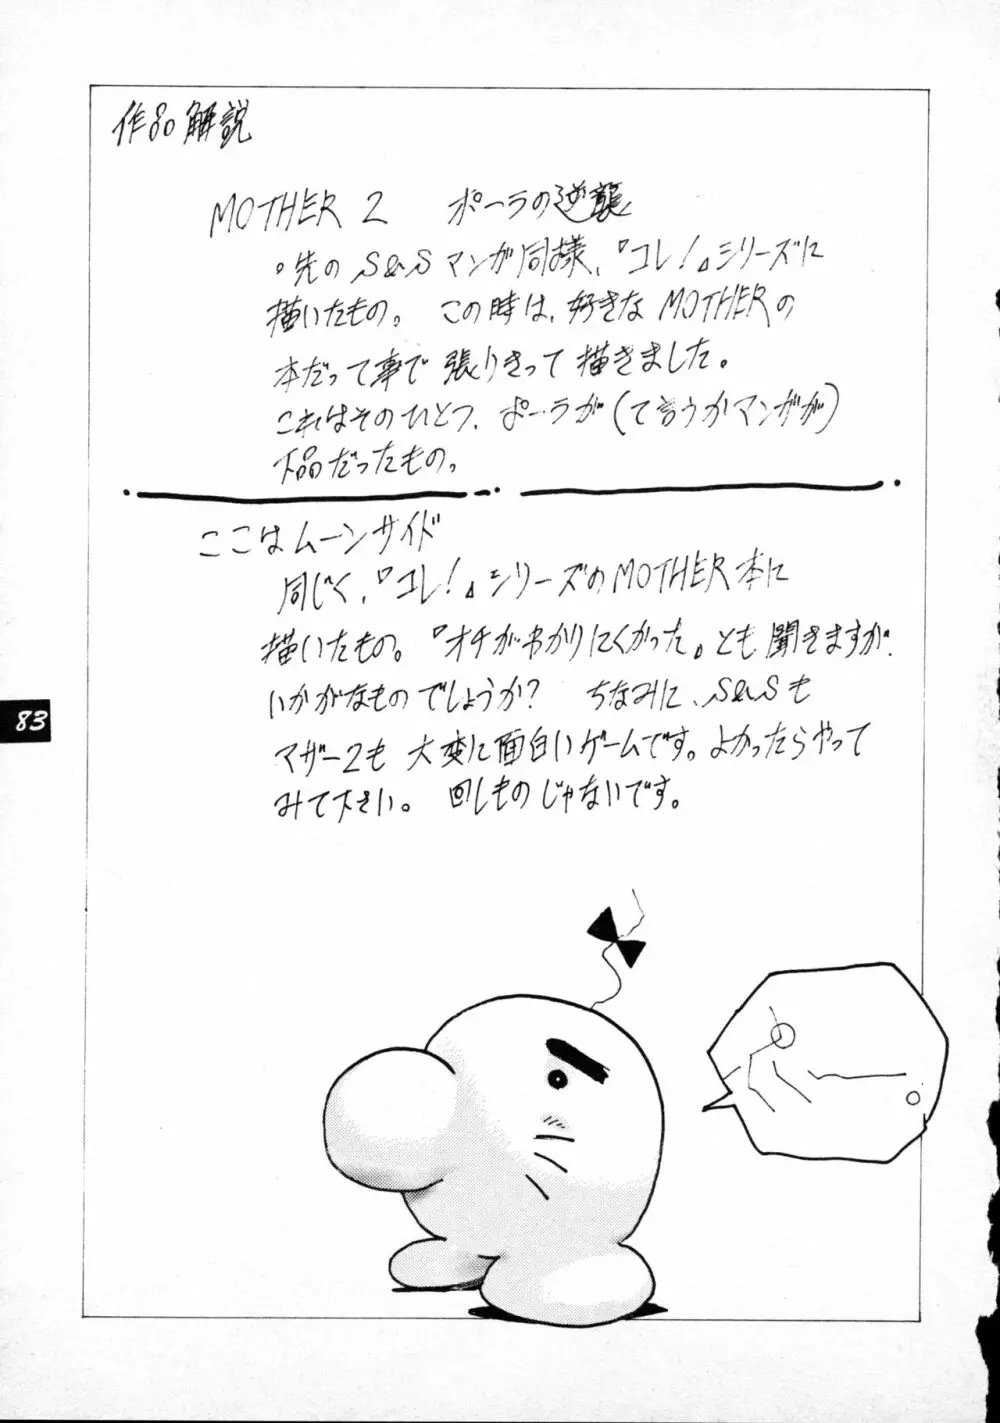 作品解説
MOTHER 2 ポーラの逆襲
○先のS&Sマンガ同様、『コレ!』シリーズに
描いたもの。この時は、好きなMOTHERの
本だって事で張りきって描きました。
これはそのひとつ、ポーラが(て言うかマンガが)
下品だったもの。
ここはムーンサイド
同じく、『コレ!』シリーズのMOTHER本に
描いたもの。『オチがわかりにくかった』とも聞きますが、
いかがなものでしょうか? ちなみに、S&Sも
マザー2も大変に面白いゲームです。よかったらやって
みて下さい。回しものじゃないです。
83